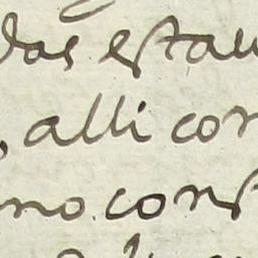 das estan
alli con
no. conf